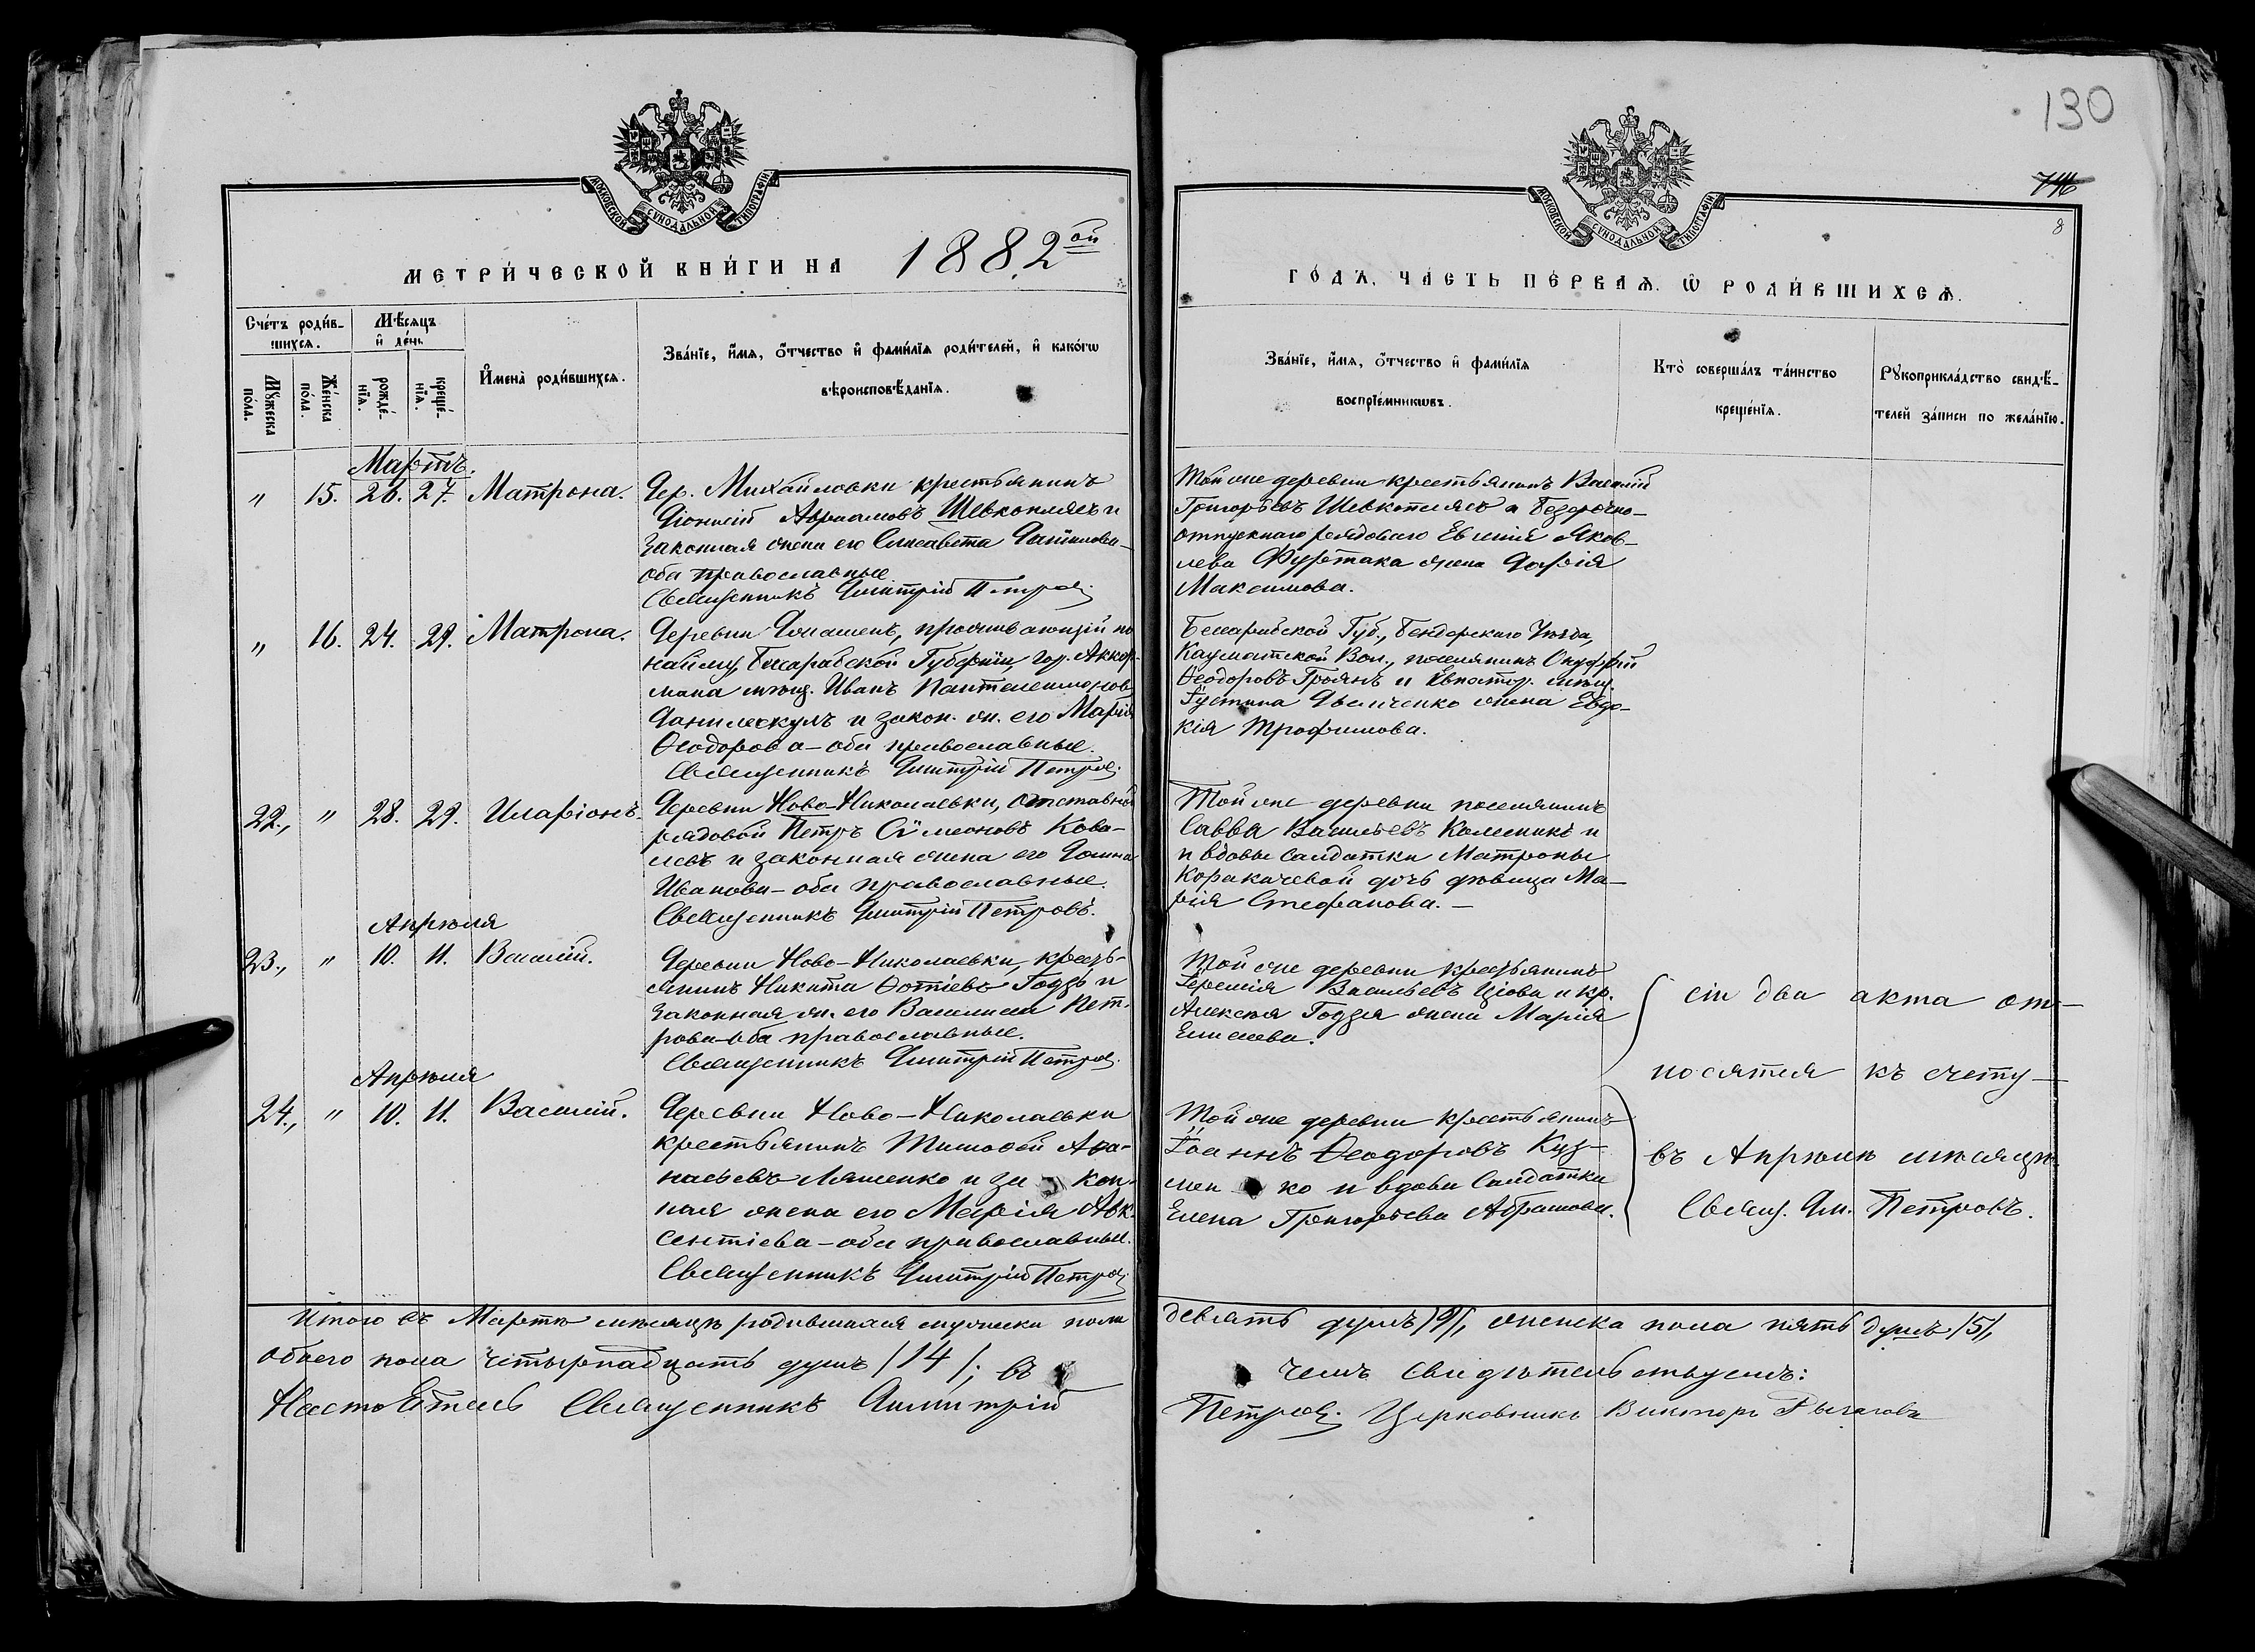 130
716
8
МОСКОВСКОЙ СУНОДАЛЬНОЙ ТИПОГРАФІИ
МОСКОВСКОЙ СУНОДАЛЬНОЙ ТИПОГРАФІИ
МЕТРИ́ЧЕСКОЙ КНИ́ГИ НА 1882ой
ГО́ДЪ, ЧА́СТЬ ПЕ́РВАѦ, Ѽ РОДИ́ВШИХСѦ.
Сче́тъ роди́в-
шихсѧ.
Мѣ́сѧцъ
и҆ де́нь
Мꙋжеска
по́ла.
Же́нска
по́ла.
рожде́-
нїѧ.
креще́-
нїѧ.
И҆мена̀ роди́вшихсѧ.
Зва́нїе, и҆́мѧ, ѻ҆́тчество и҆ фами́лїѧ роди́телей, и҆ како́гѡ
вѣроисповѣ́данїѧ.
Зва́нїе, и҆́мѧ, ѻ҆́тчество и҆ фами́лїѧ
воспрїе́мникѡвъ.
Кто̀ соверша́лъ та́инство
креще́нїѧ.
Рꙋкоприкла́дство свидѣ́-
телей за́писи по жела́нїю.
Мартъ.
" 15. 26. 27. Матрона.
Дер. Михайловки крестьянинъ
Діонисій Авраамовъ Шевкоплясъ и
законная жена его Елисавета Даніилова-
оба православные.
Священникъ Димитрій Петровъ.
Той же деревни крестьянинъ Василій
Григорьевъ Шевкоплясъ и безсрочно-
отпускнаго рядоваго Евгенія Яков-
лева Фуртака жена Дарія
Максимова.
" 16. 24. 29. Матрона.
Деревни Домашенъ, проживающій по
найму, Бессарабской Губерніи, гор. Аккер-
мана мѣщ. Иванъ Пантелеимоновъ
Данилескулъ и закон. ж. его Марія
Ѳеодорова - оба православные.
Священникъ Димитрій Петровъ.
Бессарабской Губ., Бендерскаго Уѣзда,
Вол., поселянинъ Онуфрій
Ѳеодоровъ Троянъ и Евпатор. мѣщ.
Іустина жена Евдо-
кія Трофимова.
22., " 28. 29. Иларіонъ.
Деревни Ново-Николаевки, отставной
рядовой Петръ Сѵмеоновъ Кова-
левъ и законная жена его Домна
Иванова - оба православные.
Священникъ Димитрій Петровъ.
Той же деревни поселянинъ
Савва Васильевъ Колесникъ и
и вдовы солдатки Матроны
Коракачевой дочь дѣвица Ма-
рія Стефанова. -
Апрѣля
23., " 10. 11. Василій.
Деревни Ново-Николаевки, кресть-
янинъ Никита Ѳотіевъ Годзь и
законная ж. его Василиса Пет-
рова - оба православные.
Священникъ Димитрій Петровъ.
Той же деревни крестьянинъ
Іеремія Васильевъ и кр.
Алексѣя Годзя жена Марія
Елисеева.
Апрѣля
24., " 10. 11. Василій.
Деревни Ново-Николаевки
крестьянинъ Тимоѳей Аѳа-
насьевъ Ляшенко и закон-
ная жена его Марія Авк-
сентіева - оба православные.
Священникъ Димитрій Петровъ.
Той же деревни крестьянинъ
Іоаннъ Ѳеодоровъ Куз-
менко и вдова Солдатка
Елена Григорьева Абрамова.
Сіи два акта от-
носятся къ счету
въ Апрѣлѣ мѣсяцѣ.
Свящ. Дм. Петровъ.
Итого въ Мартѣ мѣсяцѣ родившихся мужеска пола
девять душъ /9/, женска пола пять душъ /5/,
обоего пола четырнадцать душъ /14/; въ
чемъ свидѣтельствуемъ:
Настоятель Священникъ Димитрій
Петровъ. Церковникъ Викторъ Рыгаловъ